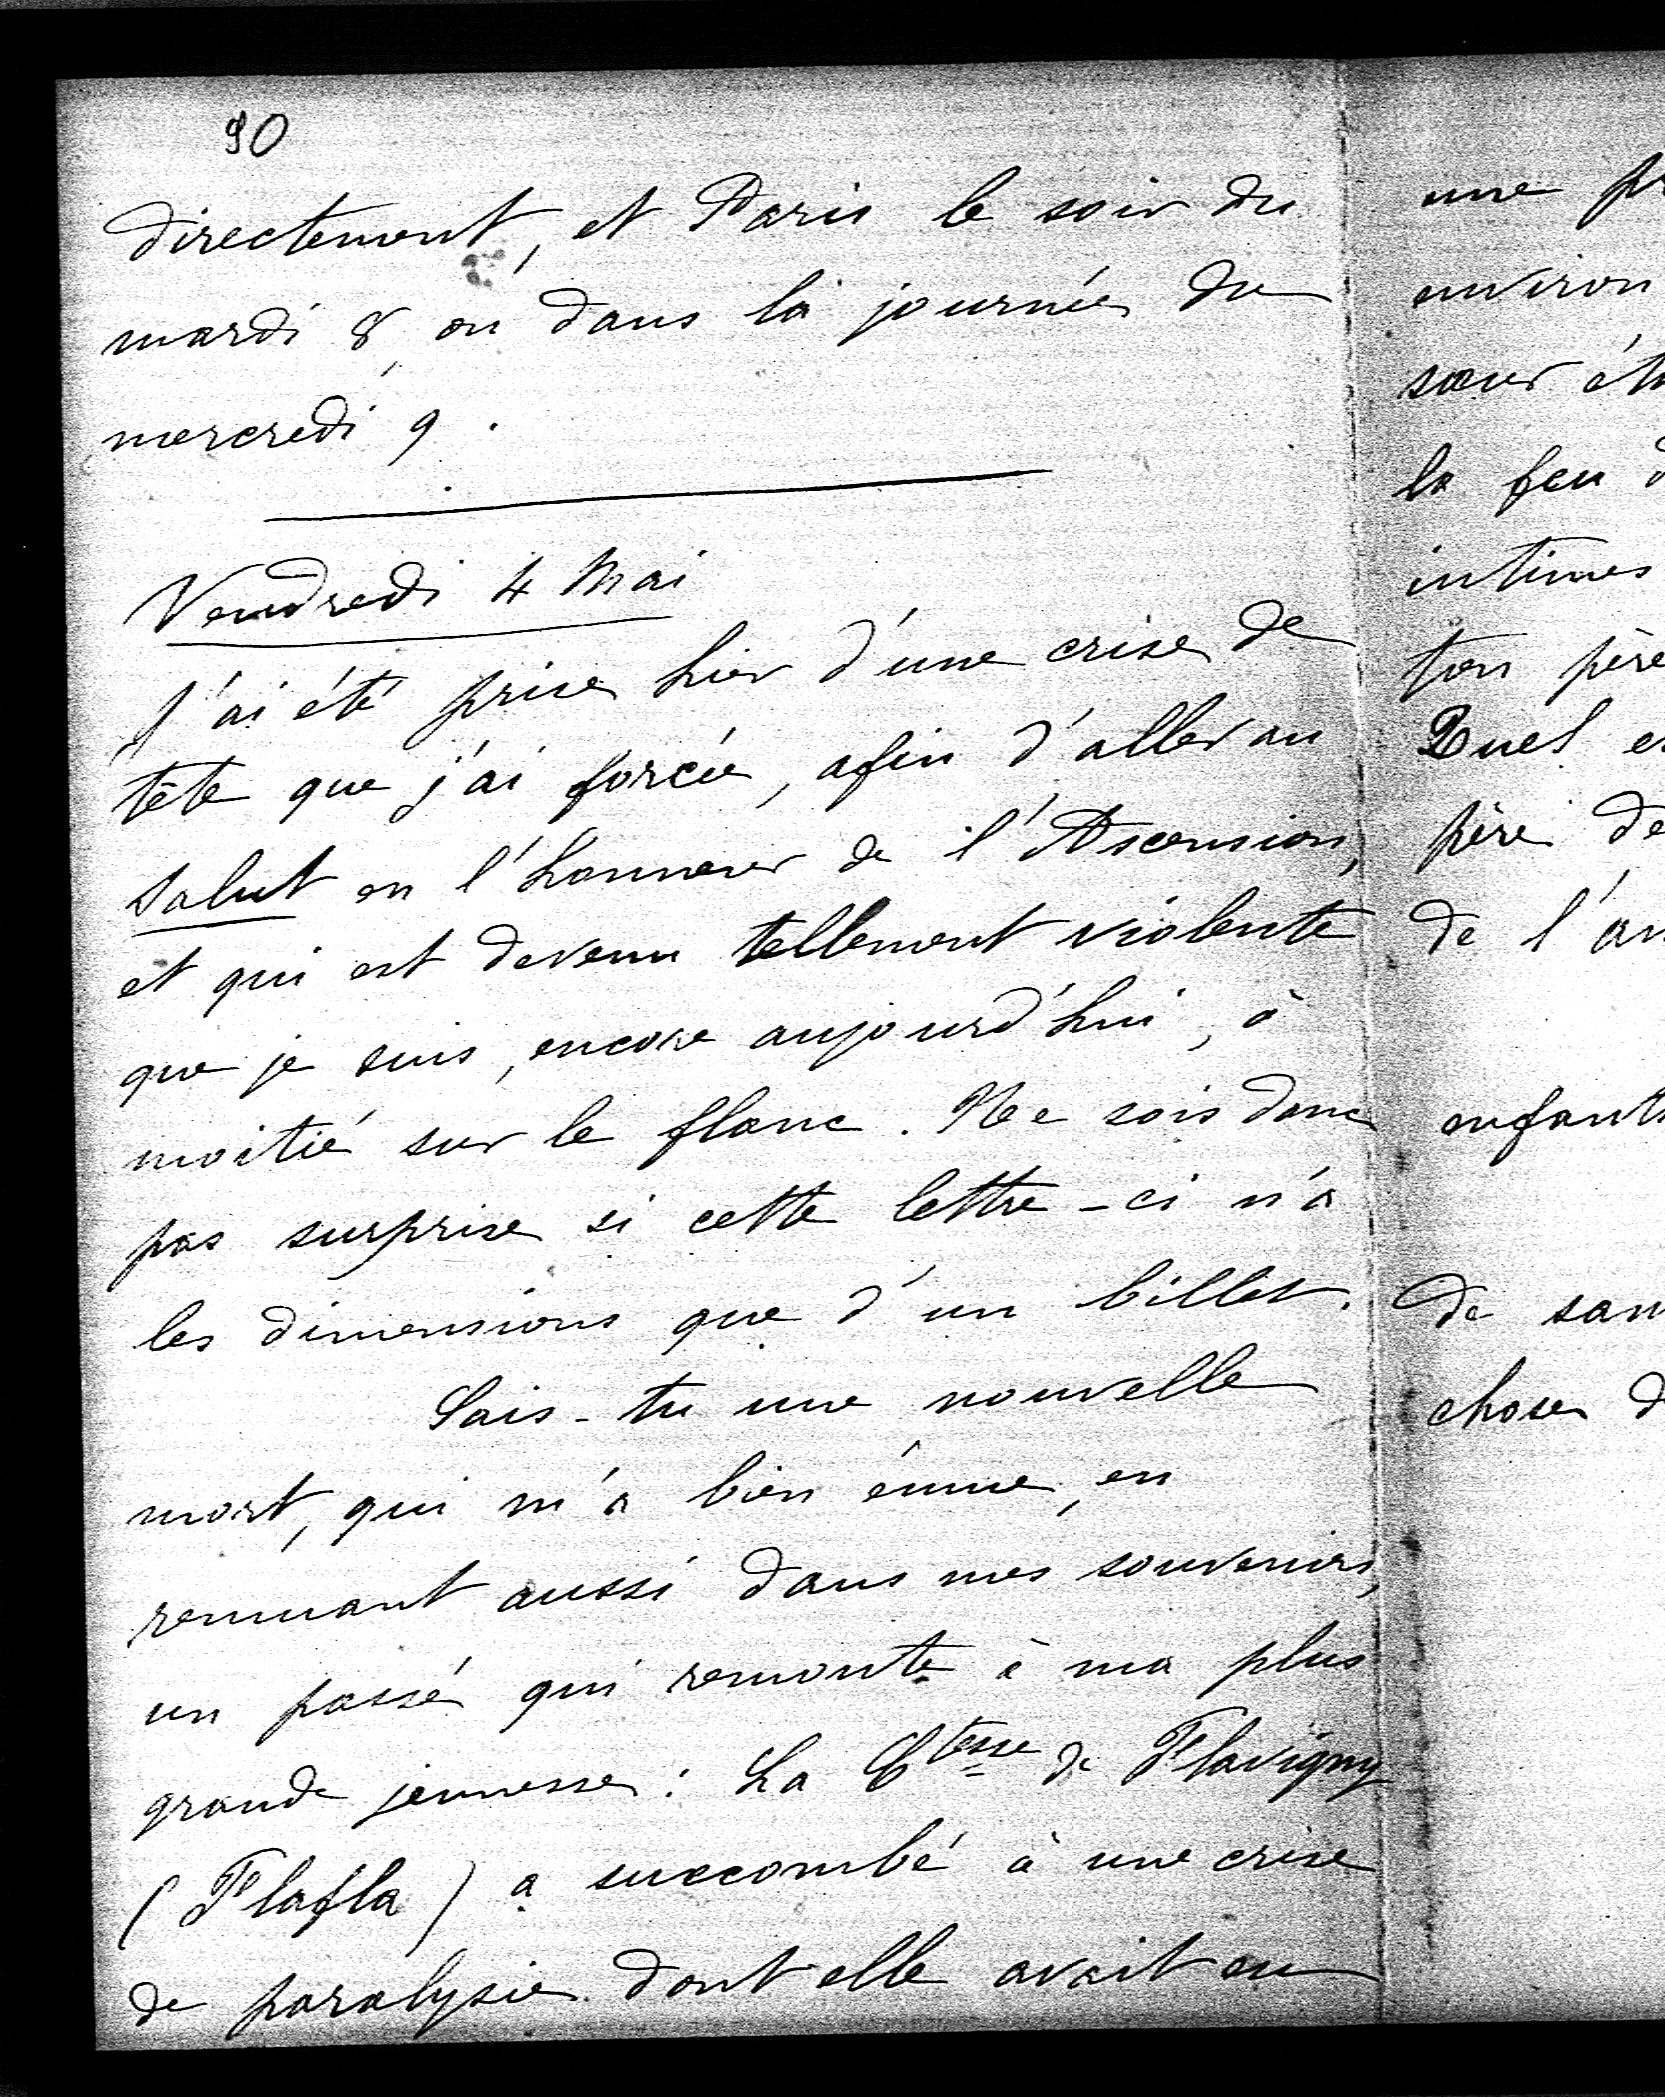 90
directement, et Paris le soir du
mardi 8, ou dans la journée du
mercredi 9.
Vendredi 4 Mai
J'ai été prise hier d'une crise de
tête que j'ai forcée, afin d'aller au
salut en l'honneur de l'Ascension,
et qui est devenu tellement violente
que je suis, encore aujourd'hui, à
moitié sur le flanc. Ne sois donc
pas surprise si cette lettre-ci n'a
les dimensions que d'un billet.
Sais-tu une nouvelle
mort, qui m'a bien émue, en
remuant aussi dans mes souvenirs,
un passé qui remonte à ma plus
grande jeunesse: La Ctesse de Flavigny
(Flafla) a succombé à une crise
de paralysie dont elle avait eu
une
environ
sœur
la feu
intimes
ton père
Quel
père de
de l'
enfants
de
choses